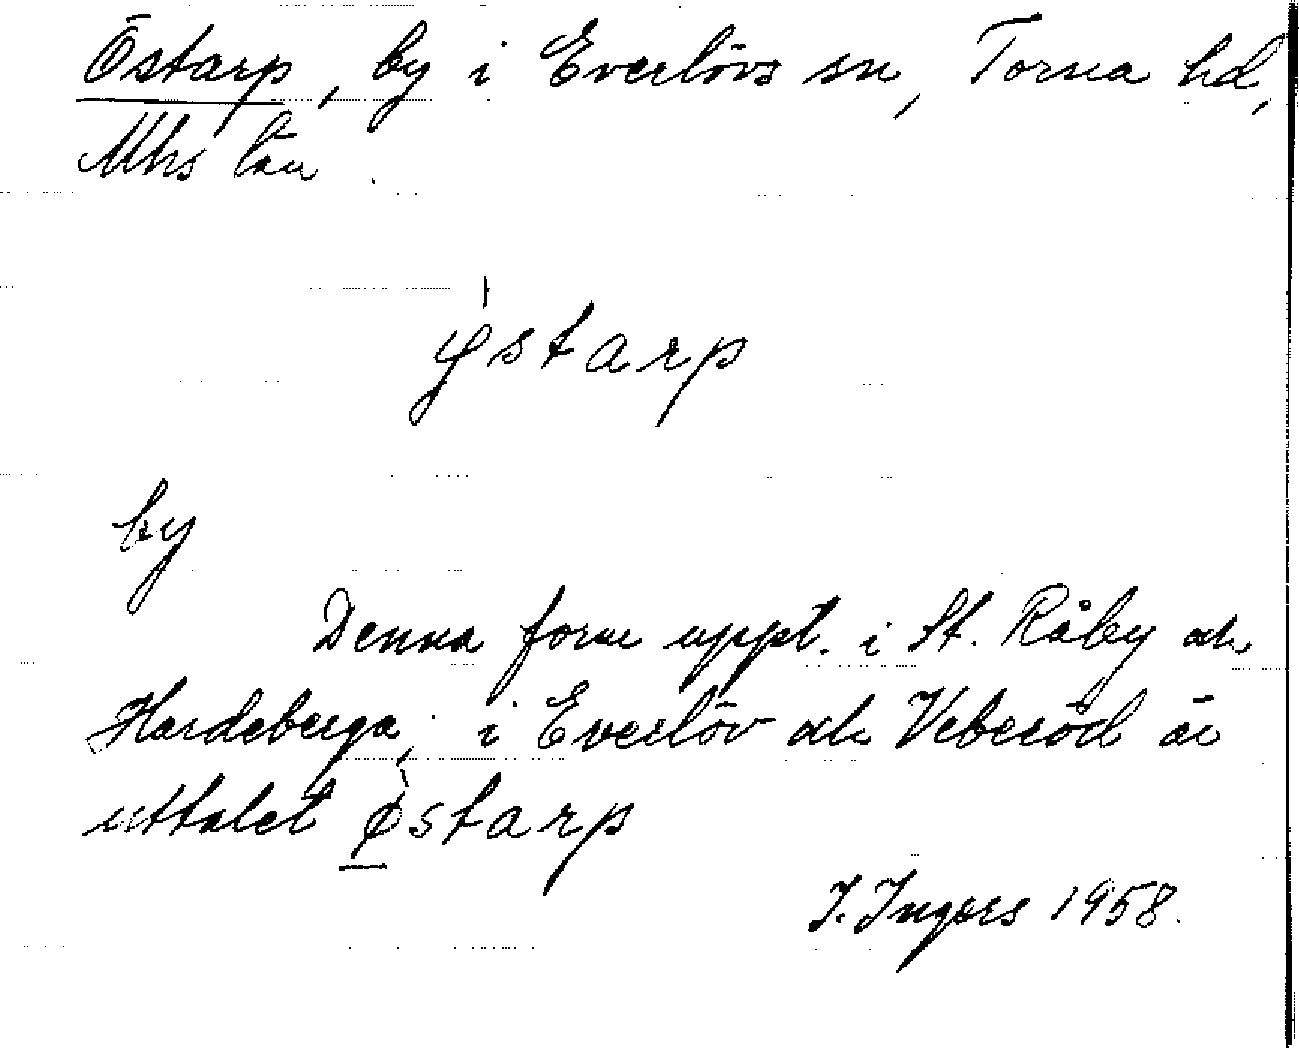 Östarp, by i Everlövs sn, Torna hd,
Mhs län.
østarp
by
Denna form uppt. i St. Råby och
Hardeberga; i Everlöv och Veberöd är
uttalet østarp
I. Ingers 1958.